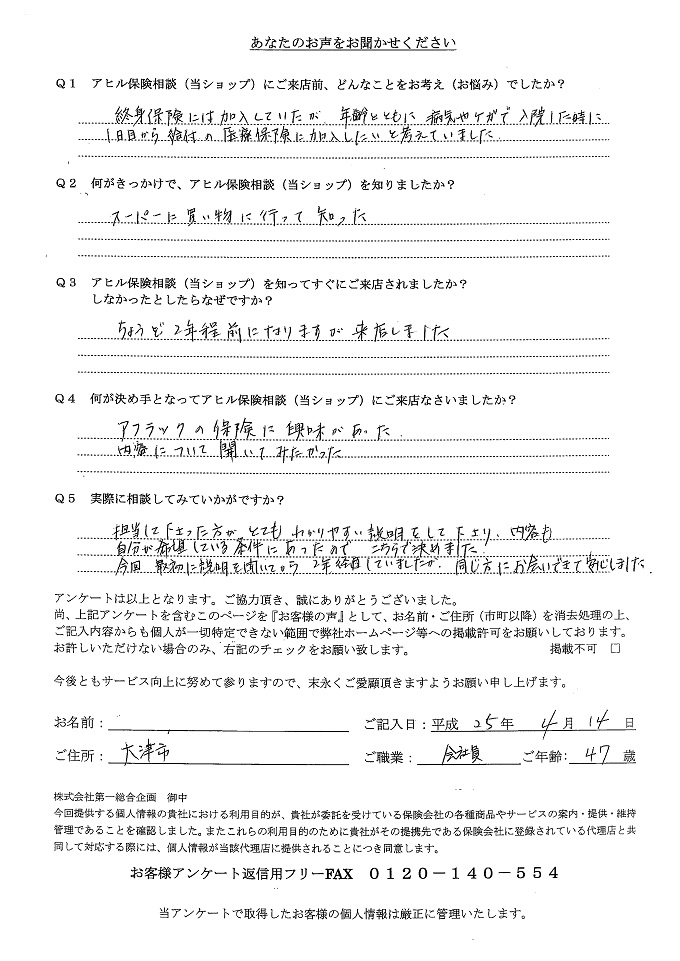 あなたのお声をお聞かせください
Q1 アヒル保険相談（当ショップ）にご来店前、どんなことをお考え（お悩み）でしたか？
終身保険には加入していたが 年齢とともに 病気やケガで 入院した時に
1日目から 給付の 医療保険に加入したいと考えていました
Q2 何がきっかけで、アヒル保険相談（当ショップ）を知りましたか？
スーパーに買い物に行って知った
Q3 アヒル保険相談（当ショップ）を知ってすぐにご来店されましたか？
しなかったとしたらなぜですか？
ちょうど2年程前になりますが 来店しました
Q4 何が決め手となってアヒル保険相談（当ショップ）にご来店なさいましたか？
アフラックの保険に興味があった.
内容について聞いてみたかった
Q5 実際に相談してみていかがですか？
担当して下さった方が とても わかりやすい説明をして下さり、内容も
自分が希望している条件にあったので こちらで決めました.
今回 最初に説明を聞いてから 2年経過していましたが、同じ方にお会いできて安心しました.
アンケートは以上となります。ご協力頂き、誠にありがとうございました。
尚、上記アンケートを含むこのページを『お客様の声』として、お名前・ご住所（市町以降）を消去処理の上、
ご記入内容からも個人が一切特定できない範囲で弊社ホームページ等への掲載許可をお願いしております。
お許しいただけない場合のみ、右記のチェックをお願い致します。 掲載不可 □
今後ともサービス向上に努めて参りますので、末永くご愛顧頂きますようお願い申し上げます。
お名前： ご記入日：平成 25年 4月 14日
ご住所： 大津市 ご職業： 会社員 ご年齢: 47 歳
株式会社第一総合企画 御中
今回提供する個人情報の貴社における利用目的が、貴社が委託を受けている保険会社の各種商品やサービスの案内・提供・維持
管理であることを確認しました。またこれらの利用目的のために貴社がその提携先である保険会社に登録されている代理店と共
同して対応する際には、個人情報が当該代理店に提供されることにつき同意します。
お客様アンケート返信用フリーFAX 0120-140-554
当アンケートで取得したお客様の個人情報は厳正に管理いたします。